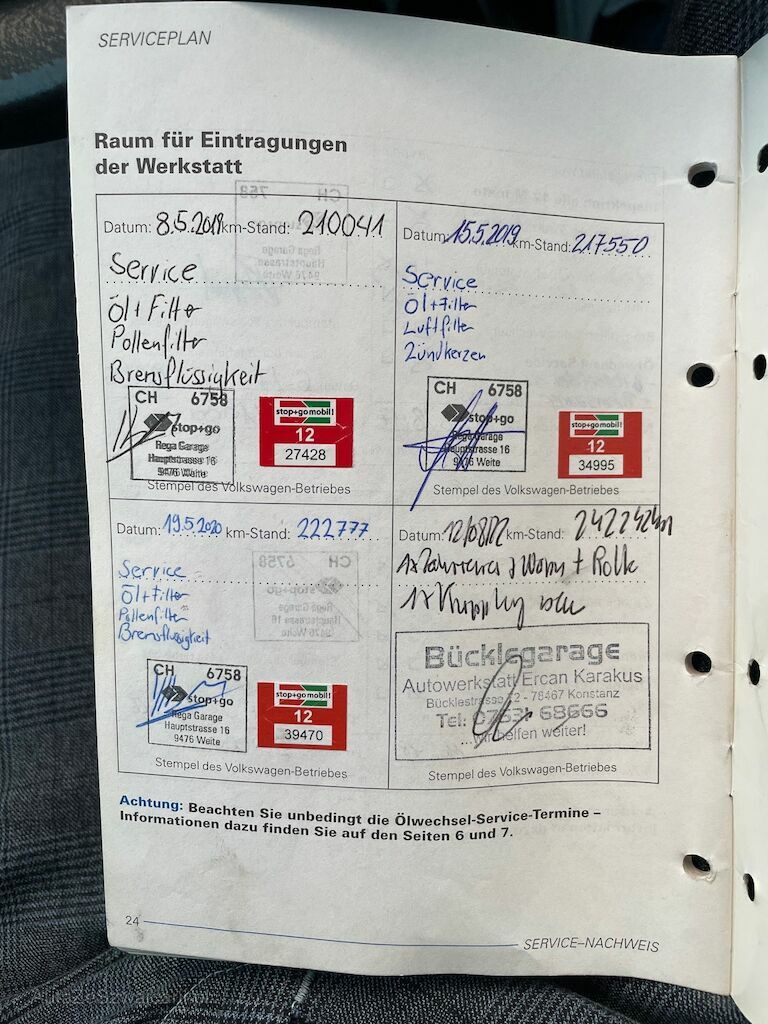 SERVICEPLAN
Raum für Eintragungen
der Werkstatt
Datum: 8.5.2018 km-Stand: 210041
Service
Öl + Filter
Pollenfilter
Bremsflüssigkeit
CH 6758
stop+go
Rega Garage
Hauptstrasse 16
9476 Weite
stop+go mobil!
12
27428
Stempel des Volkswagen-Betriebes
Datum: 15.5.2019 km-Stand: 217550
Service
Öl + Filter
Luftfilter
Zündkerzen
CH 6758
stop+go
Rega Garage
Hauptstrasse 16
9476 Weite
stop+go mobil!
12
34995
Stempel des Volkswagen-Betriebes
Datum: 19.5.2020 km-Stand: 222777
Service
Öl + Filter
Pollenfilter
Bremsflüssigkeit
CH 6758
stop+go
Rega Garage
Hauptstrasse 16
9476 Weite
stop+go mobil!
12
39470
Stempel des Volkswagen-Betriebes
Datum: 12/08/22 km-Stand: 242242km
1x + Rolle
1x Kupplung neu
Bücklegarage
Autowerkstatt Ercan Karakus
Bücklestrasse 12 - 78467 Konstanz
Tel: 68666
...wir helfen weiter!
Stempel des Volkswagen-Betriebes
Achtung: Beachten Sie unbedingt die Ölwechsel-Service-Termine –
Informationen dazu finden Sie auf den Seiten 6 und 7.
24
SERVICE–NACHWEIS